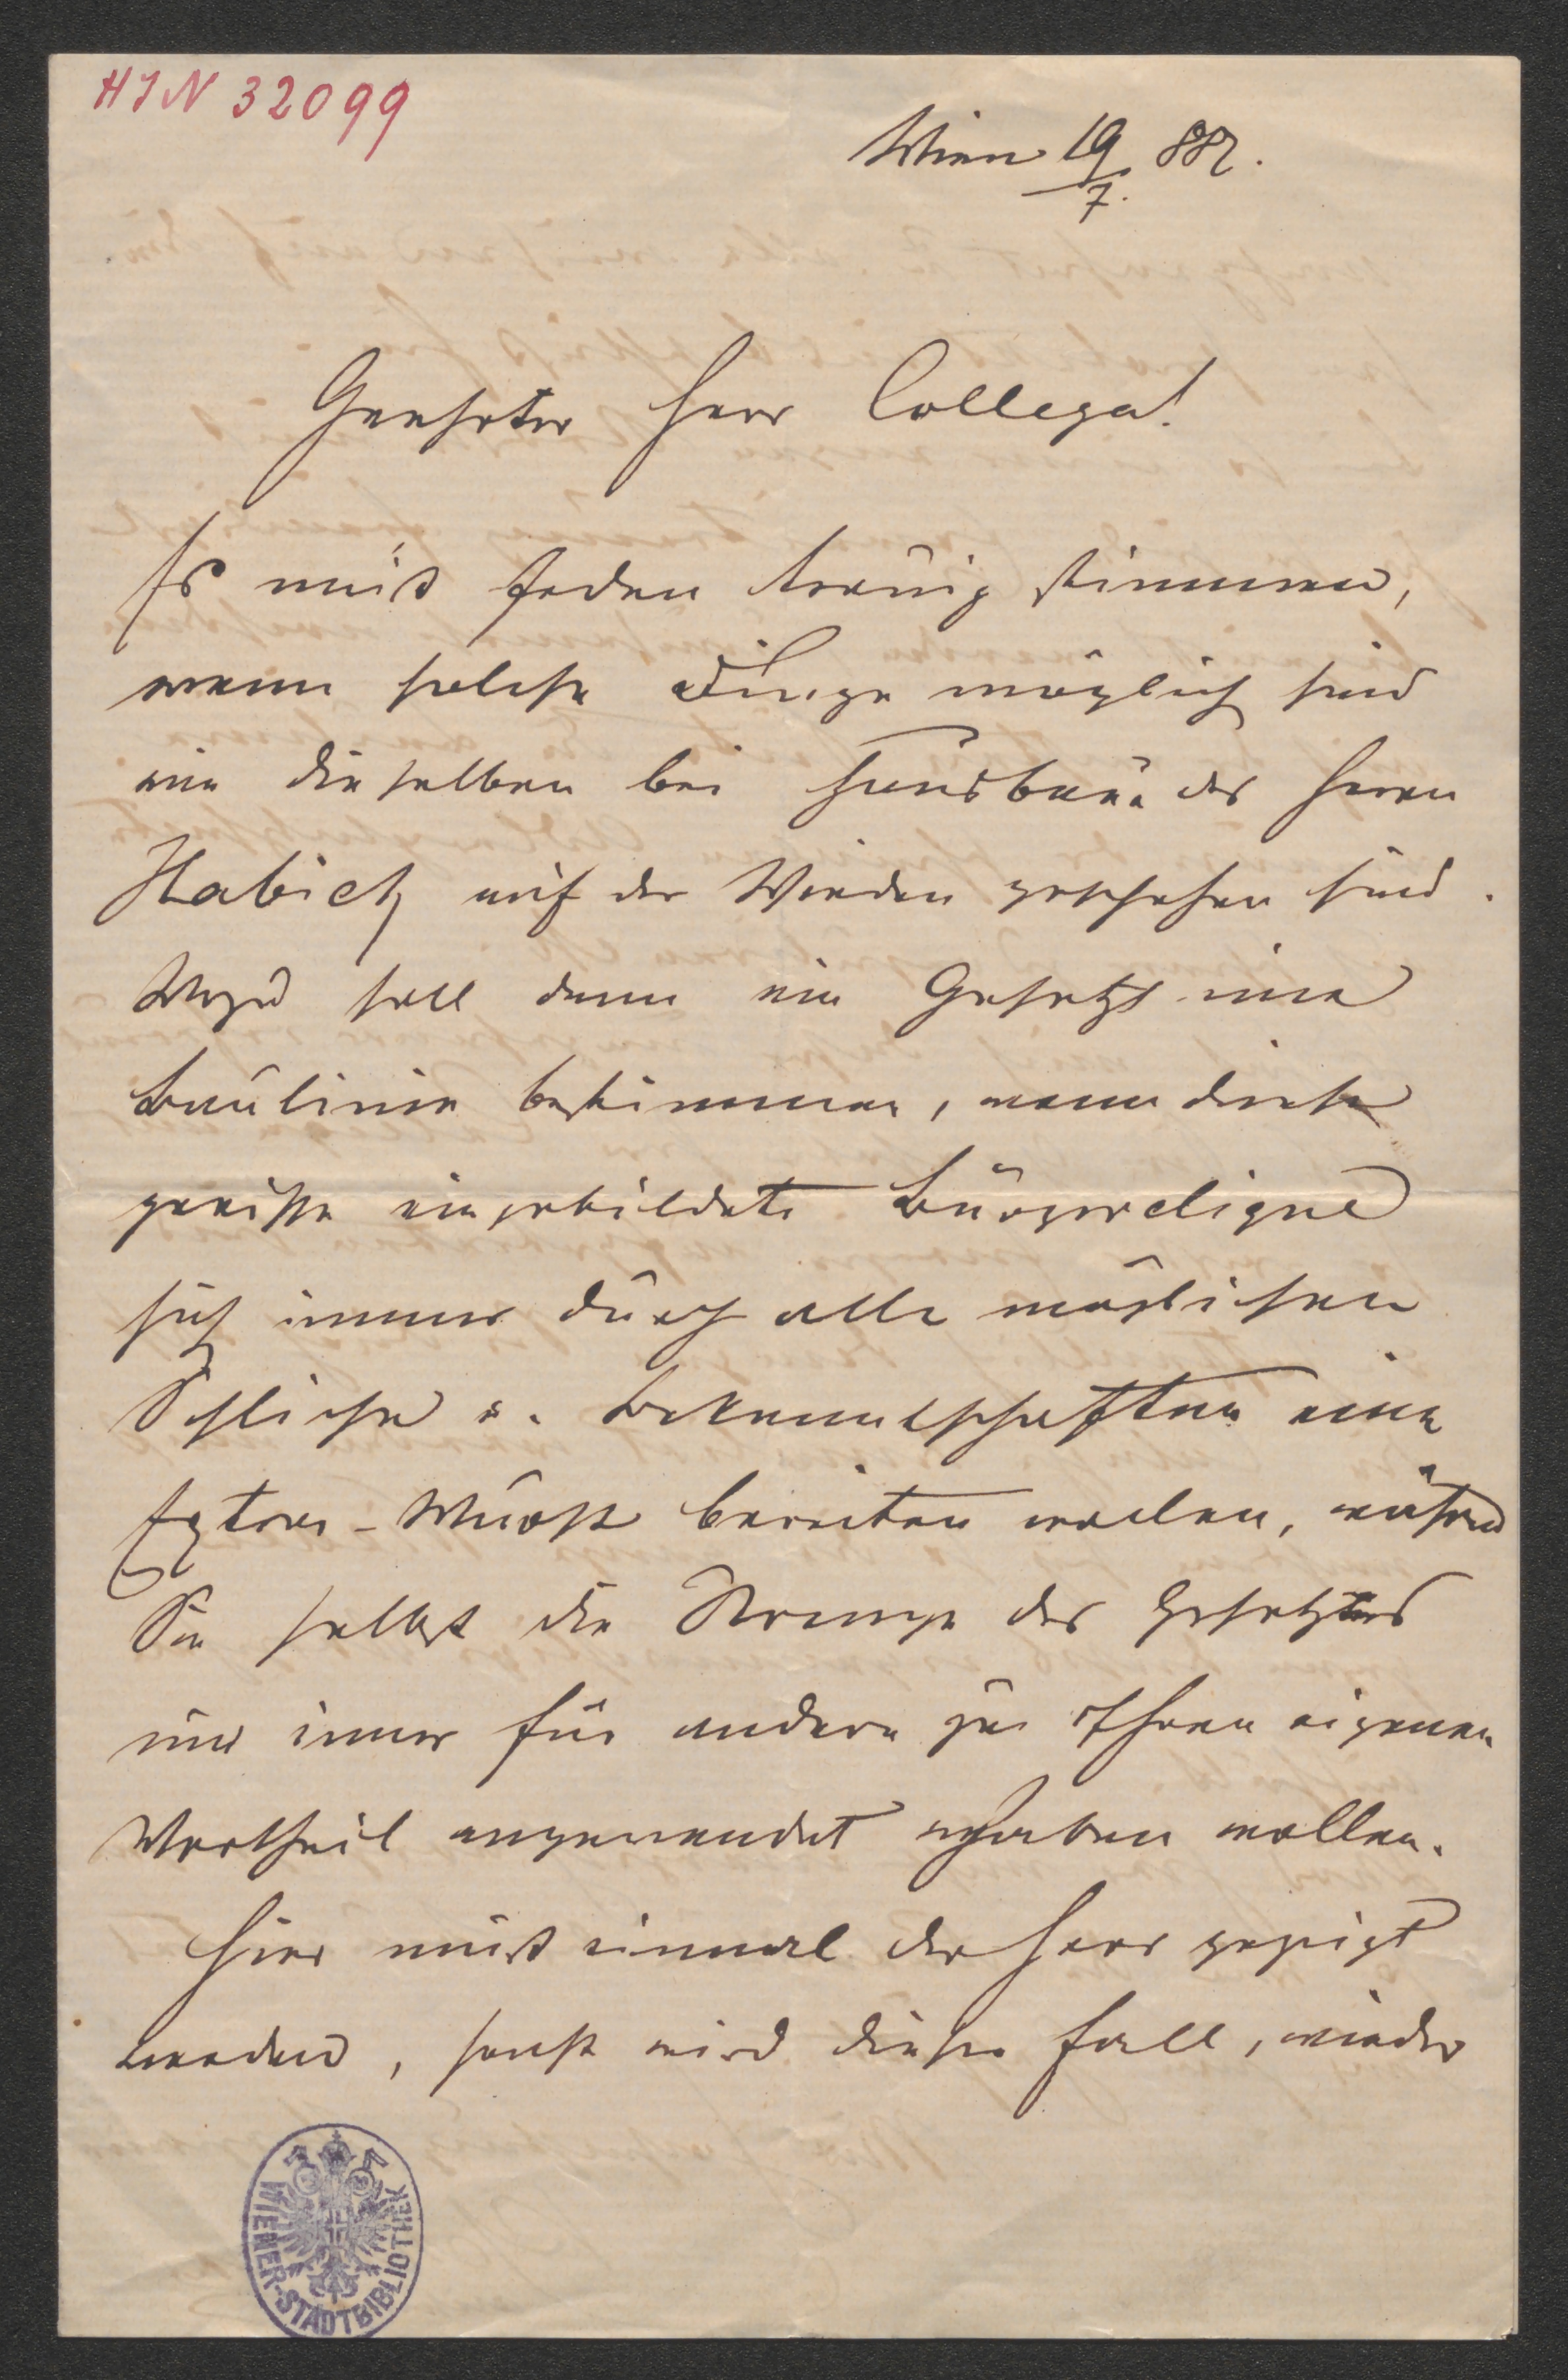 HIN 32099
Wien 19/7. 882.
Geehrter Herr Collega!
Es muß Jeden traurig stimmen,
wenn solche Dinge möglich sind
wie dieselben bei Hausbau des Herrn
Habich auf der Wieden geschehen sind.
Wozu soll denn ein Gesetz eine
Baulinie bestimmen, wenn diese
gewisse eingebildete Bürgerclique
sich immer durch alle möglichen
Schliche u. Bekanntschaften eine
Extra-Wurst bereiten wollen, während
Sie selbst die Strenge des Gesetztes
nur immer für andere zu Ihren eigenen
Vortheil angewendet haben wollen.
Hier muß einmal der Herr gezeigt
werden, sonst wird dieser Fall, wieder
WIENER-STADTBIBLIOTHEK